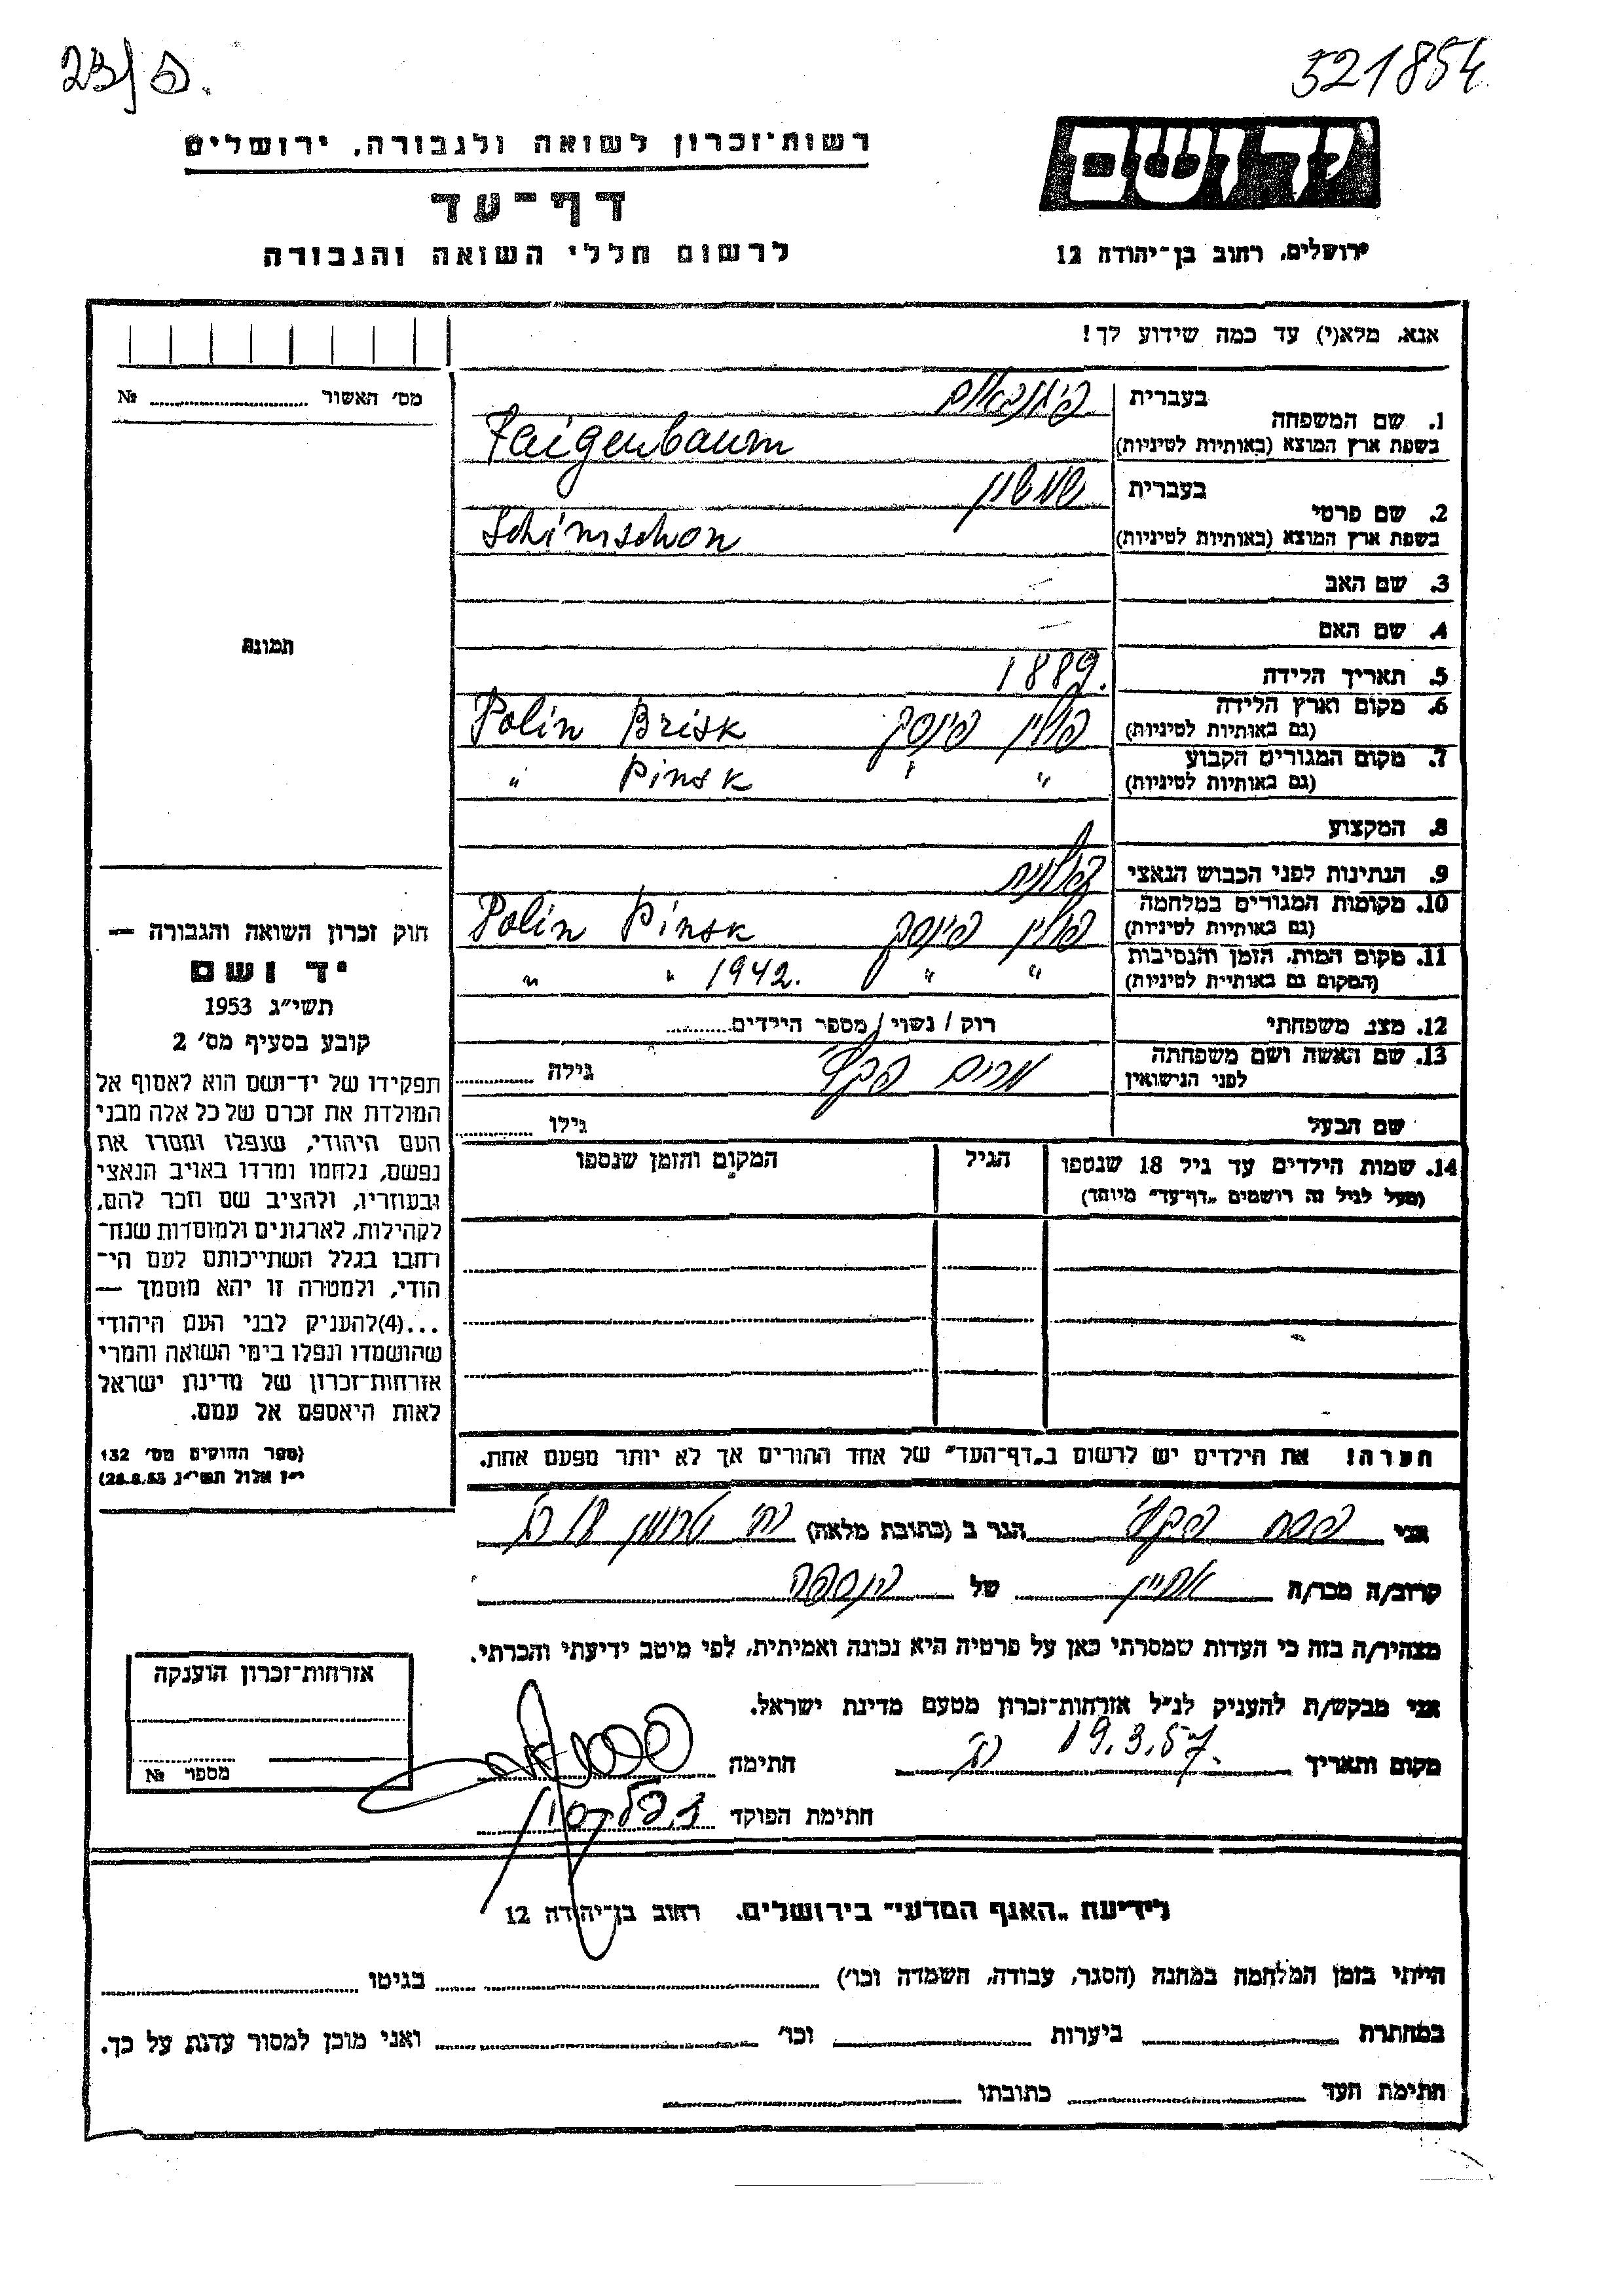 521854
רשות־זכרון לשואה ולגבורה, ירושלים
דף־עד
לרשום חללי השואה והגבורה
יד ושם
ירושלים, רחוב בן־יהודה 12
אנא, מלא(י) עד כמה שידוע לך!
מס׳ האשור № ........
1. שם המשפחה בעברית פייגנבאום
בשפת ארץ המוצא (באותיות לטיניות) Faigenbaum
2. שם פרטי בעברית שמשון
בשפת ארץ המוצא (באותיות לטיניות) Schimschon
3. שם האב —
4. שם האם —
5. תאריך הלידה 1889.
6. מקום וארץ הלידה (גם באותיות לטיניות) פולין פינסק Polin Brisk
7. מקום המגורים הקבוע (גם באותיות לטיניות) " " " Pinsk
8. המקצוע
9. הנתינות לפני הכבוש הנאצי פולנית
10. מקומות המגורים במלחמה (גם באותיות לטיניות) פולין פינסק Polin Pinsk
11. מקום המות, הזמן והנסיבות (המקום גם באותיות לטיניות) " " 1942. " "
12. מצב משפחתי רוק / נשוי / מספר הילדים........
13. שם האשה ושם משפחתה לפני הנישואין מרים גילה ........
שם הבעל גילו ........
14. שמות הילדים עד גיל 18 שנספו
(מעל לגיל זה רושמים „דף־עד״ מיוחד)
הגיל
המקום והזמן שנספו
הערה! את הילדים יש לרשום ב„דף־העד״ של אחד ההורים אך לא יותר מפעם אחת.
תמונה
חוק זכרון השואה והגבורה —
יד ושם
תשי״ג 1953
קובע בסעיף מס׳ 2
תפקידו של יד־ושם הוא לאסוף אל
המולדת את זכרם של כל אלה מבני
העם היהודי, שנפלו ומסרו את
נפשם, נלחמו ומרדו באויב הנאצי
ובעוזריו, ולהציב שם וזכר להם,
לקהילות, לארגונים ולמוסדות שנח־
רחבו בגלל השתייכותם לעם הי־
הודי, ולמטרה זו יהא מוסמך —
...(4)להעניק לבני העם היהודי
שהושמדו ונפלו בימי השואה והמרי
אזרחות־זכרון של מדינת ישראל
לאות היאספם אל עמם.
(ספר החוקים מס׳ 132
י״ז אלול תשי״ג 28.8.53)
אני פסח הגר ב (כתובת מלאה)
קרוב/ה מכר/ה של הנספה
מצהיר/ה בזה כי העדות שמסרתי כאן על פרטיה היא נכונה ואמיתית, לפי מיטב ידיעתי והכרתי.
אני מבקש/ת להעניק לנ״ל אזרחות־זכרון מטעם מדינת ישראל.
מקום ותאריך 19.3.57. חתימה
חתימת הפוקד
אזרחות־זכרון הוענקה
מספר №
לידיעת „האגף המדעי״ בירושלים, רחוב בן־יהודה 12
הייתי בזמן המלחמה במחנה (הסגר, עבודה, השמדה וכו׳) ........ בגיטו ........
במחתרת ........ ביערות ........ וכו׳ ........ ואני מוכן למסור עדות על כך.
חתימת העד ........ כתובתו ........